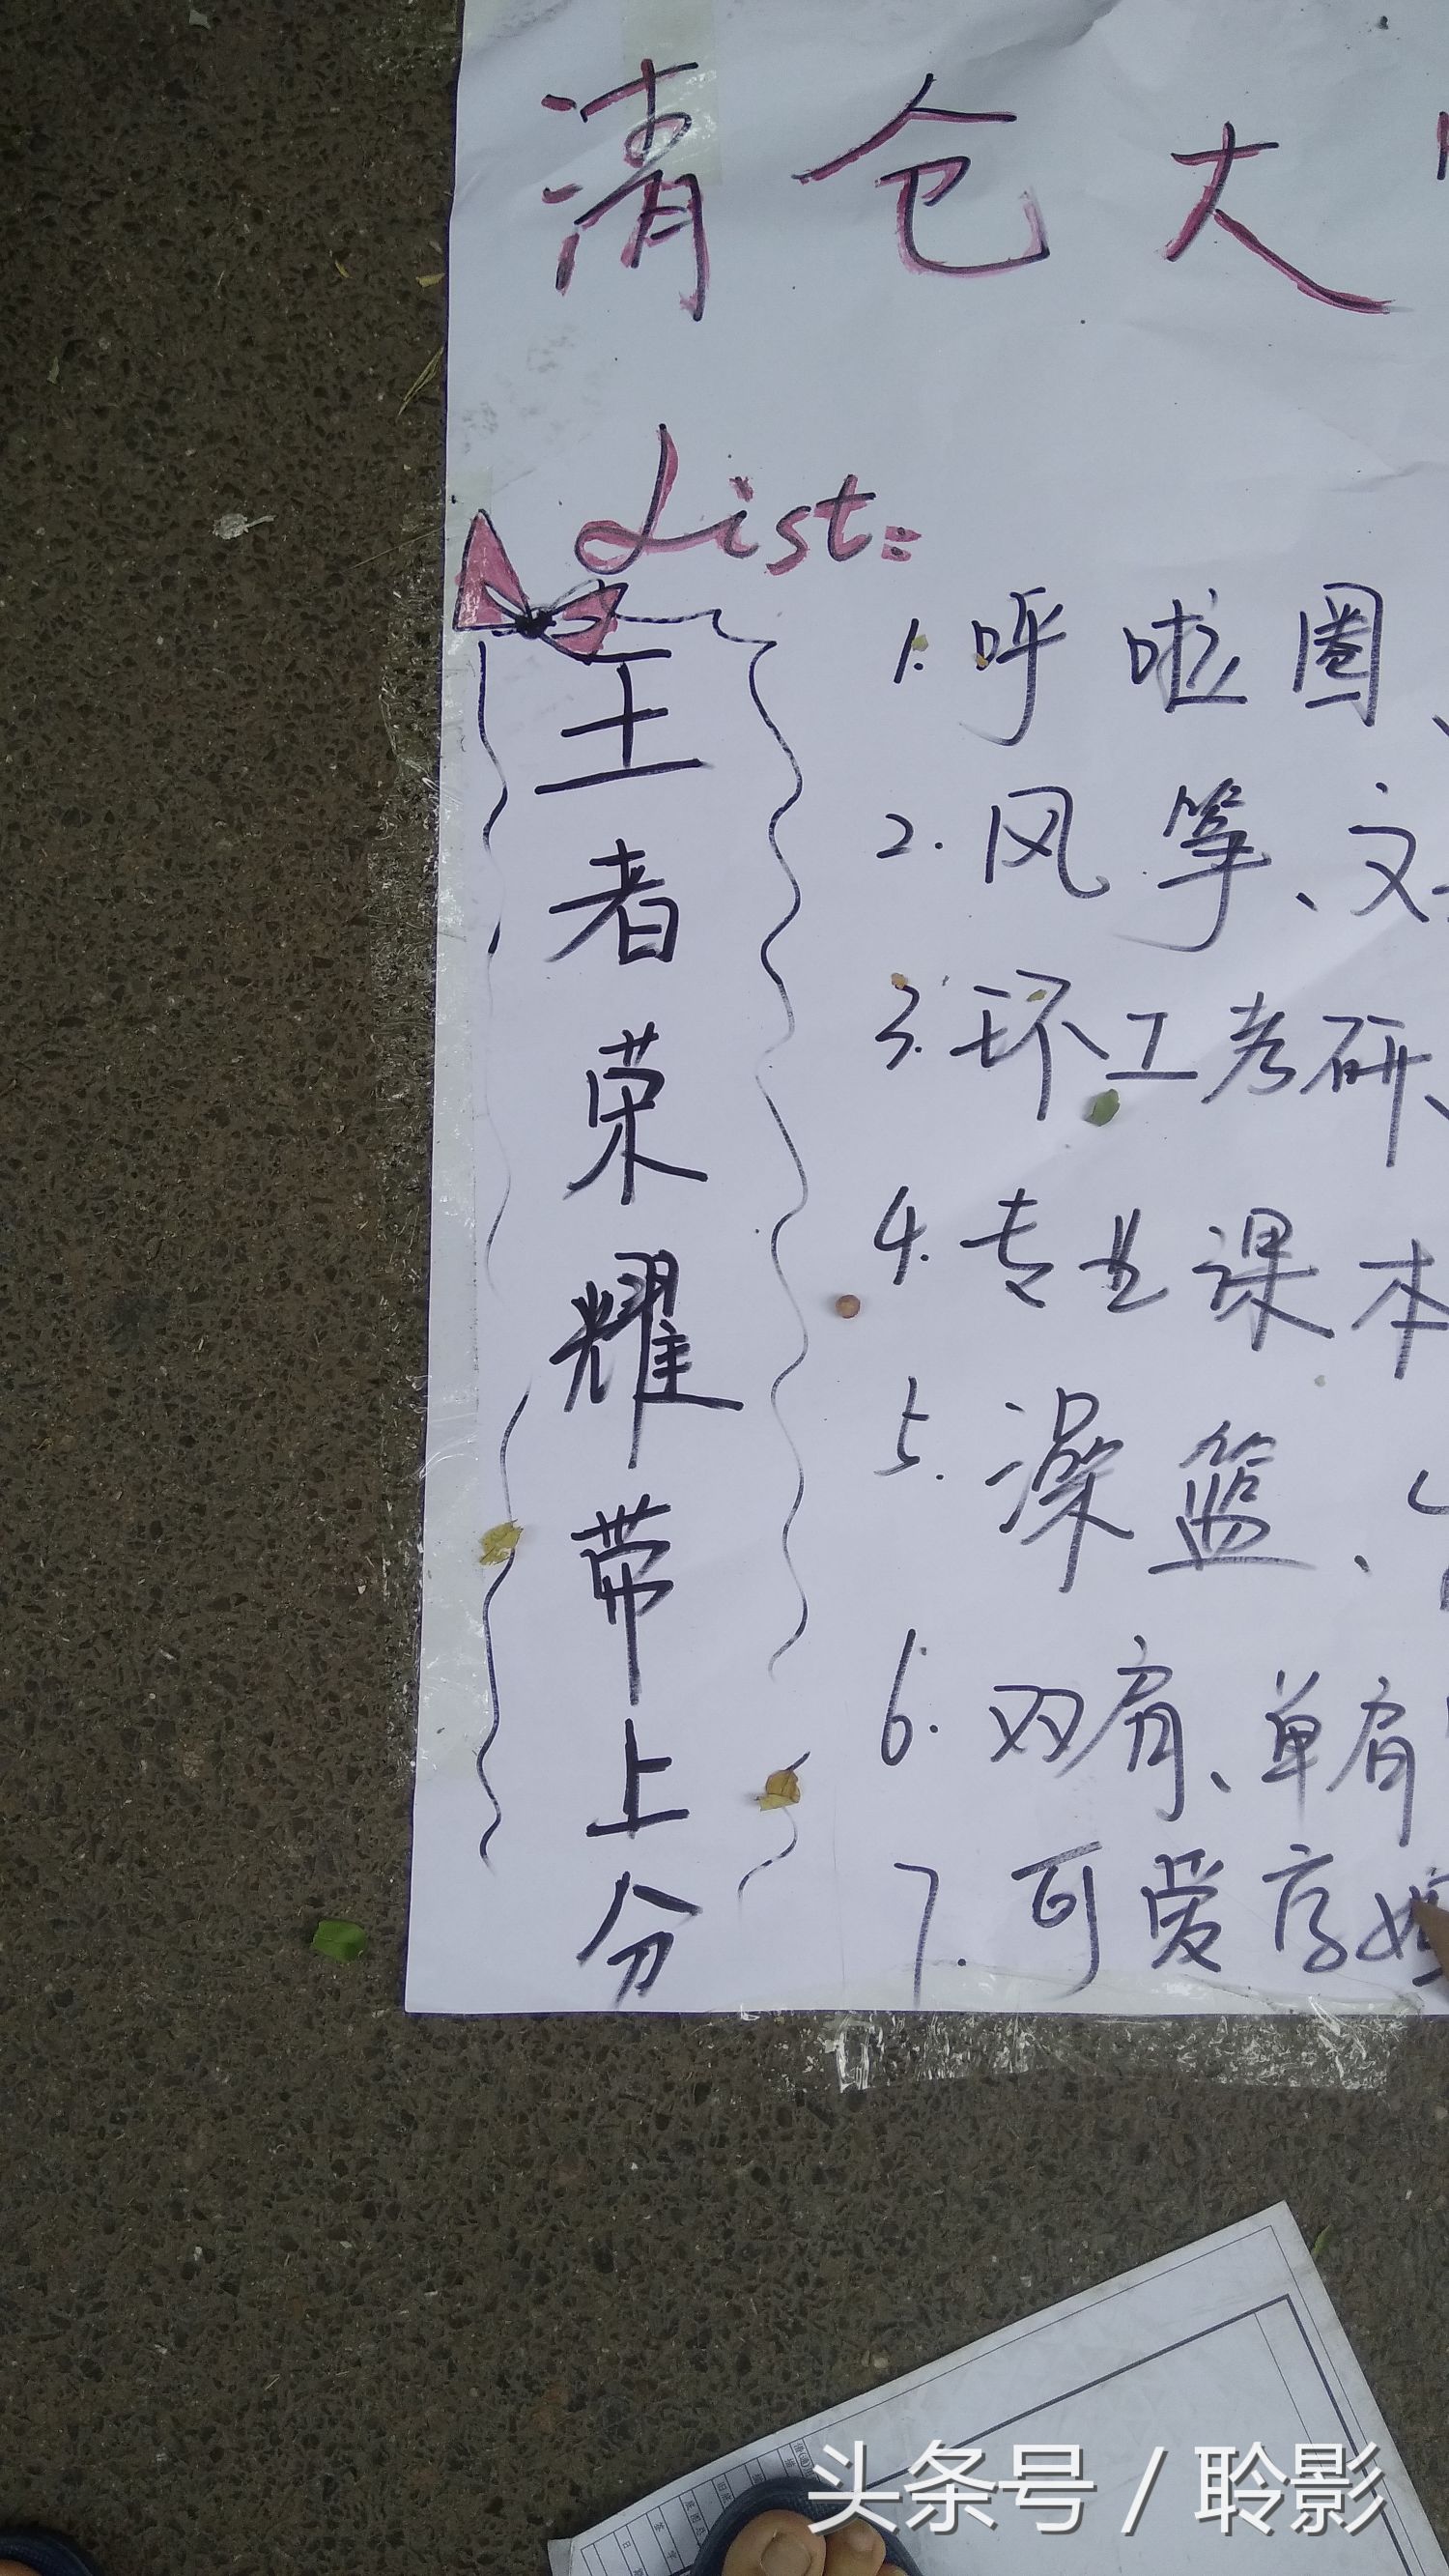 清仓大
List:
王者荣耀带上分
1. 呼啦圈、
2. 风筝、文
3. 环工考研、
4. 专业课本
5. 澡篮、
6. 双肩、单肩
7. 可爱序
头条号 / 聆影